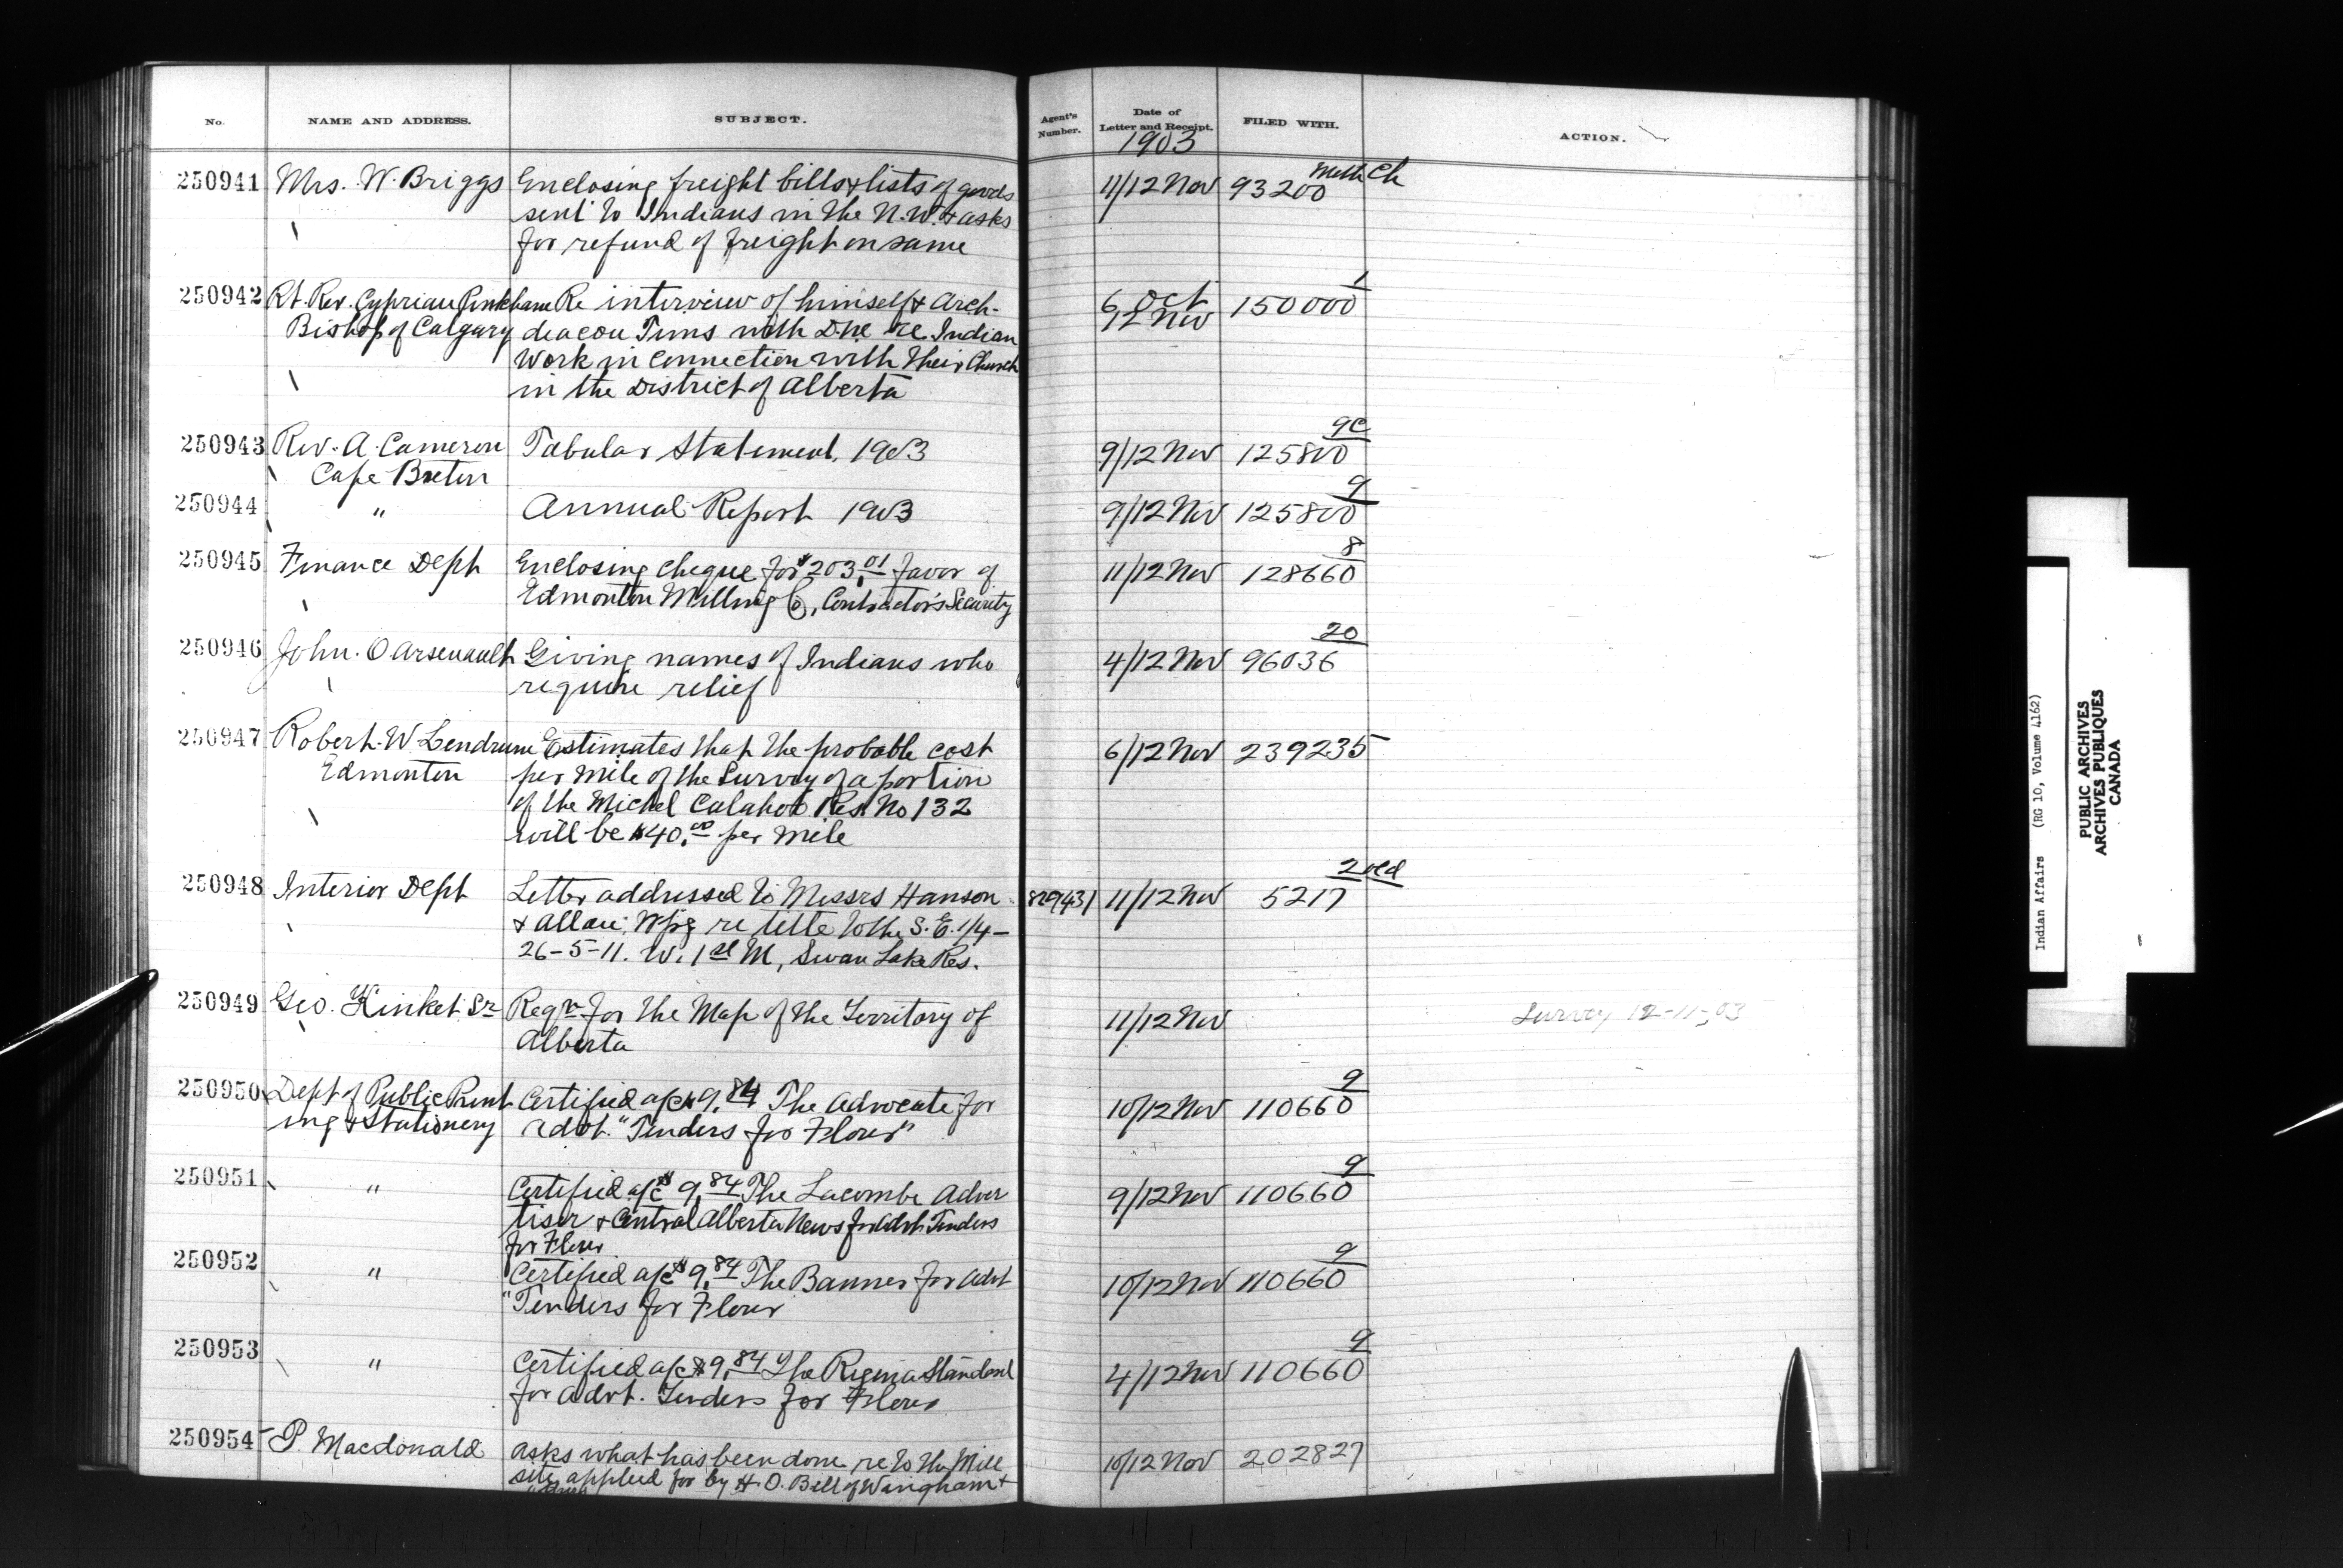 No. NAME AND ADDRESS. SUBJECT. Agent's Number. Date of Letter and Receipt. FILED WITH. ACTION.
1903
250941 Mrs. W. Briggs Enclosing freight bills & lists of goods 11/12 Nov 93200 Meth Ch
sent to Indians in the N.W. & asks
for refund of freight on same
250942 Rt. Rev. Cyprian Pinkham Re interview of himself & Arch- 6 Oct 150000 1
Bishop of Calgary deacon Tims with D. re Indian 12 Nov
work in connection with their Church
in the District of Alberta
250943 Rev. A. Cameron Tabular Statement, 1903 9/12 Nov 125800 9c
Cape Breton
250944 " Annual Report 1903 9/12 Nov 125800 9
250945 Finance Dept Enclosing cheque for $203.01 favor of 11/12 Nov 128660 8
Edmonton Milling Co, Contractor's Security
250946 John. O Arsenault Giving names of Indians who 4/12 Nov 96036 20
require relief
250947 Robert. W Lendrum Estimates that the probable cost 6/12 Nov 239235
Edmonton per mile of the Survey of a portion
of the Michel Calahoo Res. No 132
will be $40.00 per mile
250948 Interior Dept Letter addressed to Messrs Hanson 829431 11/12 Nov 5217 2 old
& Allan: Wpg re title to the S.E. 1/4 -
26-5-11. W. 1st M, Swan Lake Res.
250949 Geo. Kinket Sr Reqn for the Map of the Territory of 11/12 Nov Survey 12-11-03
Alberta
250950 Dept of Public Print Certified a/c $9.84 The Advocate for 10/12 Nov 110660 9
ing & Stationery advt. "Tenders for Flour"
250951 " Certified a/c $9.84 The Lacombe Adver 9/12 Nov 110660 9
tiser & Central Alberta News for advt. Tenders
for Flour
250952 " Certified a/c $9.84 The Banner for advt 10/12 Nov 110660 9
"Tenders for Flour
250953 " Certified a/c $9.84 The Regina Standard 4/12 Nov 110660 9
for advt. Tenders for Flour
250954 P. Macdonald asks what has been done re to the Mill 10/12 Nov 202827
site applied for by H. O. Bell of Wingham &
Indian Affairs (RG 10, Volume 4162)
PUBLIC ARCHIVES
ARCHIVES PUBLIQUES
CANADA